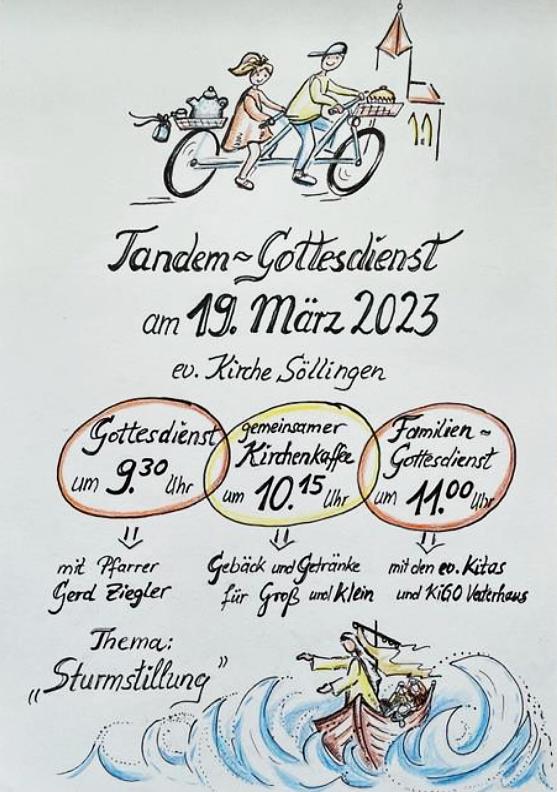 Tandem~Gottesdienst
am 19. März 2023
ev. Kirche Söllingen
Gottesdienst
um 9.30 Uhr
gemeinsamer
Kirchenkaffee
um 10.15 Uhr
Familien~
Gottesdienst
um 11.00 Uhr
mit Pfarrer
Gerd Ziegler
Gebäck und Getränke
für Groß und Klein
mit den ev. Kitas
und KiGO Vaterhaus
Thema:
„Sturmstillung"